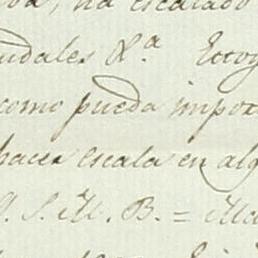 ha escalado
udales &.ª Estoy
como pueda impor
hacer escala en alg
S. M. B. = Ma